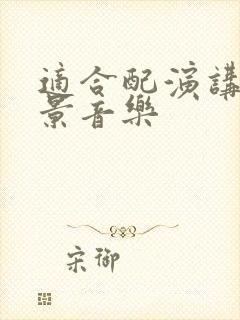 適合配演講
景音樂
宋御